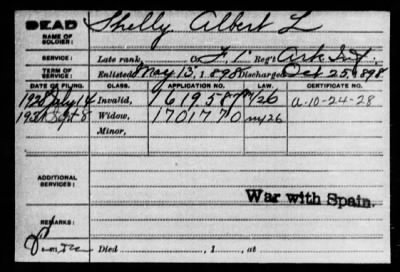 DEAD
NAME OF SOLDIER:
Shelly Albert L
SERVICE: Late rank, Co. F, 1" Reg't Ark Inf.
TERM OF SERVICE: Enlisted May 13, 1898 Discharged Oct 25, 1898
DATE OF FILING. CLASS. APPLICATION NO. LAW. CERTIFICATE NO.
1928 July 14 Invalid, 1619587 m/26 a-10-24-28
Sept 8 Widow, 1701770 my26
Minor,
ADDITIONAL SERVICES:
War with Spain.
REMARKS:
Died , 1 , at